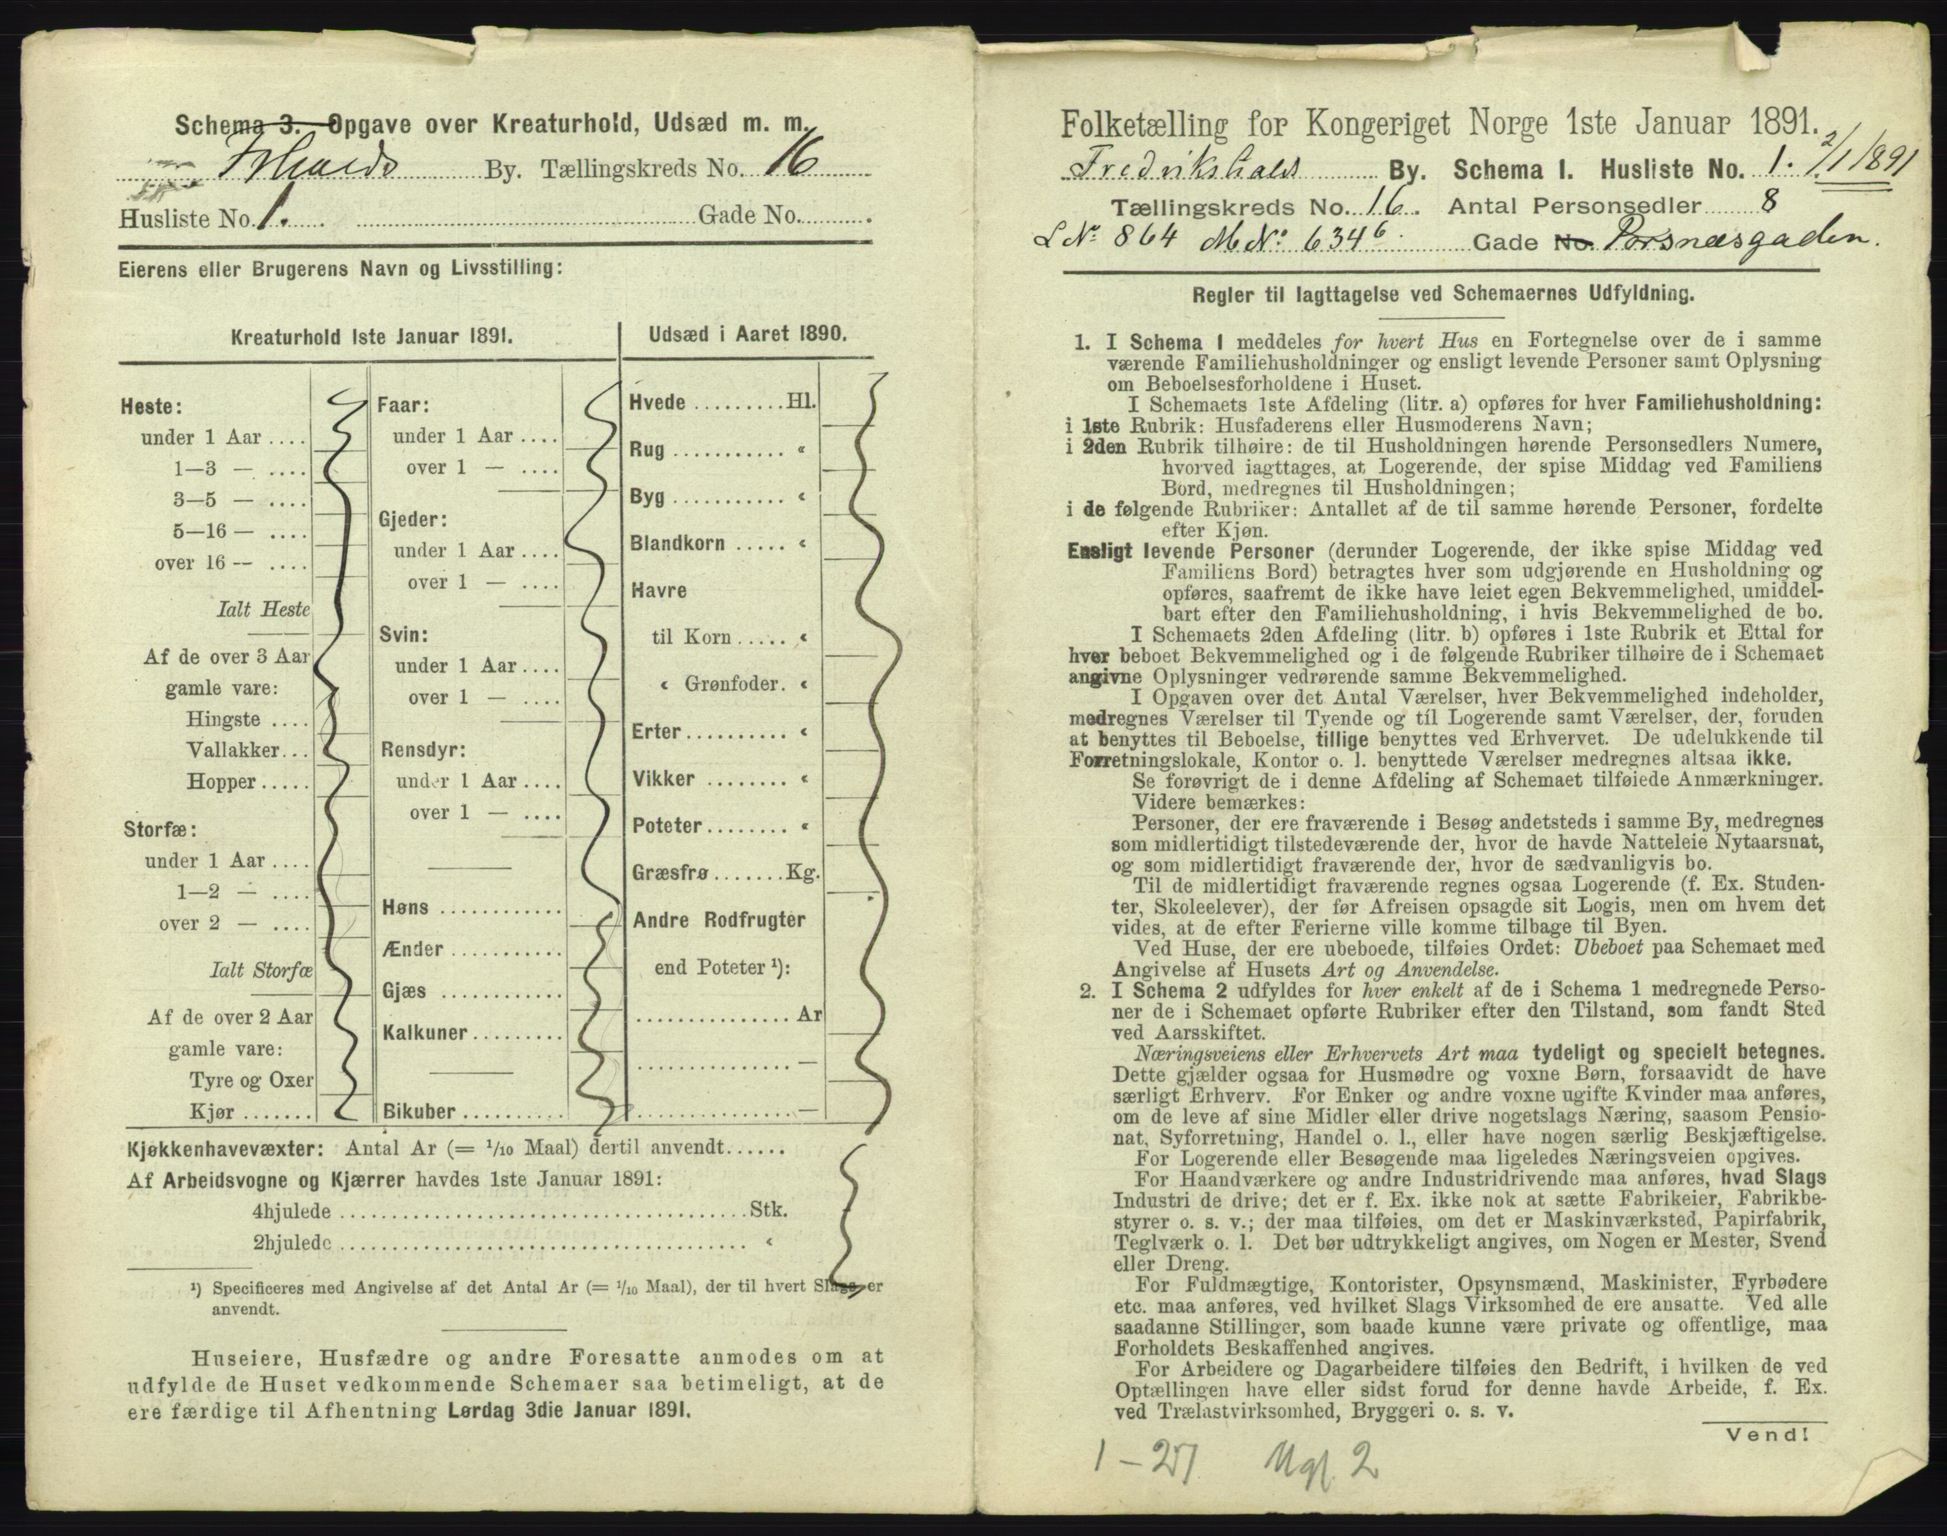 Schema 3. Opgave over Kreaturhold, Udsæd m. m.
Frhalds By. Tællingskreds No. 16
Husliste No. 1. Gade No. .
Eierens eller Brugerens Navn og Livsstilling:
Kreaturhold 1ste Januar 1891.
Heste:
under 1 Aar ....
1—3 — ....
3—5 — ....
5—16 — ....
over 16 — ....
Ialt Heste
Af de over 3 Aar
gamle vare:
Hingste ....
Vallakker...
Hopper.....
Storfæ:
under 1 Aar ....
1—2 — ....
over 2 — ....
Ialt Storfæ
Af de over 2 Aar
gamle vare:
Tyre og Oxer
Kjør.......
Faar:
under 1 Aar ....
over 1 — ....
Gjeder:
under 1 Aar ....
over 1 — ....
Svin:
under 1 Aar ....
over 1 — ....
Rensdyr:
under 1 Aar ....
over 1 — ....
Høns ............
Ænder ..........
Gjæs ............
Kalkuner.........
Bikuber..........
Udsæd i Aaret 1890.
Hvede .........Hl.
Rug ........... «
Byg ........... «
Blandkorn ..... «
Havre
til Korn ..... «
« Grønfoder. «
Erter.......... «
Vikker ........ «
Poteter........ «
Græsfrø.......Kg.
Andre Rodfrugter
end Poteter ¹):
............... Ar
............... —
............... —
Kjøkkenhavevæxter: Antal Ar (= 1/10 Maal) dertil anvendt......
Af Arbeidsvogne og Kjærrer havdes 1ste Januar 1891:
4hjulede .......................................Stk.
2hjulede ....................................... «
¹) Specificeres med Angivelse af det Antal Ar (= 1/10 Maal), der til hvert Slags er
anvendt.
Huseiere, Husfædre og andre Foresatte anmodes om at
udfylde de Huset vedkommende Schemaer saa betimeligt, at de
ere færdige til Afhentning Lørdag 3die Januar 1891.
Folketælling for Kongeriget Norge 1ste Januar 1891.
Fredrikshalds By. Schema I. Husliste No. 1. 2/1 1891
Tællingskreds No. 16. Antal Personsedler 8
L No. 864 M No. 634 6. Gade No. Porsnæsgaden.
Regler til Iagttagelse ved Schemaernes Udfyldning.
1. I Schema I meddeles for hvert Hus en Fortegnelse over de i samme
værende Familiehusholdninger og ensligt levende Personer samt Oplysning
om Beboelsesforholdene i Huset.
I Schemaets 1ste Afdeling (litr. a) opføres for hver Familiehusholdning:
i 1ste Rubrik: Husfaderens eller Husmoderens Navn;
i 2den Rubrik tilhøire: de til Husholdningen hørende Personsedlers Numere,
hvorved iagttages, at Logerende, der spise Middag ved Familiens
Bord, medregnes til Husholdningen;
i de følgende Rubriker: Antallet af de til samme hørende Personer, fordelte
efter Kjøn.
Ensligt levende Personer (derunder Logerende, der ikke spise Middag ved
Familiens Bord) betragtes hver som udgjørende en Husholdning og
opføres, saafremt de ikke have leiet egen Bekvemmelighed, umiddel-
bart efter den Familiehusholdning, i hvis Bekvemmelighed de bo.
I Schemaets 2den Afdeling (litr. b) opføres i 1ste Rubrik et Ettal for
hver beboet Bekvemmelighed og i de følgende Rubriker tilhøire de i Schemaet
angivne Oplysninger vedrørende samme Bekvemmelighed.
I Opgaven over det Antal Værelser, hver Bekvemmelighed indeholder,
medregnes Værelser til Tyende og til Logerende samt Værelser, der, foruden
at benyttes til Beboelse, tillige benyttes ved Erhvervet. De udelukkende til
Forretningslokale, Kontor o. l. benyttede Værelser medregnes altsaa ikke.
Se forøvrigt de i denne Afdeling af Schemaet tilføiede Anmærkninger.
Videre bemærkes:
Personer, der ere fraværende i Besøg andetsteds i samme By, medregnes
som midlertidigt tilstedeværende der, hvor de havde Natteleie Nytaarsnat,
og som midlertidigt fraværende der, hvor de sædvanligvis bo.
Til de midlertidigt fraværende regnes ogsaa Logerende (f. Ex. Studen-
ter, Skoleelever), der før Afreisen opsagde sit Logis, men om hvem det
vides, at de efter Ferierne ville komme tilbage til Byen.
Ved Huse, der ere ubeboede, tilføies Ordet: Ubeboet paa Schemaet med
Angivelse af Husets Art og Anvendelse.
2. I Schema 2 udfyldes for hver enkelt af de i Schema 1 medregnede Perso-
ner de i Schemaet opførte Rubriker efter den Tilstand, som fandt Sted
ved Aarsskiftet.
Næringsveiens eller Erhvervets Art maa tydeligt og specielt betegnes.
Dette gjælder ogsaa for Husmødre og voxne Børn, forsaavidt de have
særligt Erhverv. For Enker og andre voxne ugifte Kvinder maa anføres,
om de leve af sine Midler eller drive nogetslags Næring, saasom Pensio-
nat, Syforretning, Handel o. l., eller have nogen særlig Beskjæftigelse.
For Logerende eller Besøgende maa ligeledes Næringsveien opgives.
For Haandværkere og andre Industridrivende maa anføres, hvad Slags
Industri de drive; det er f. Ex. ikke nok at sætte Fabrikeier, Fabrikbe-
styrer o. s. v.; der maa tilføies, om det er Maskinværksted, Papirfabrik,
Teglværk o. l. Det bør udtrykkeligt angives, om Nogen er Mester, Svend
eller Dreng.
For Fuldmægtige, Kontorister, Opsynsmænd, Maskinister, Fyrbødere
etc. maa anføres, ved hvilket Slags Virksomhed de ere ansatte. Ved alle
saadanne Stillinger, som baade kunne være private og offentlige, maa
Forholdets Beskaffenhed angives.
For Arbeidere og Dagarbeidere tilføies den Bedrift, i hvilken de ved
Optællingen have eller sidst forud for denne havde Arbeide, f. Ex.
ved Trælastvirksomhed, Bryggeri o. s. v.
Vend!
1 – 27 Ugf. 2